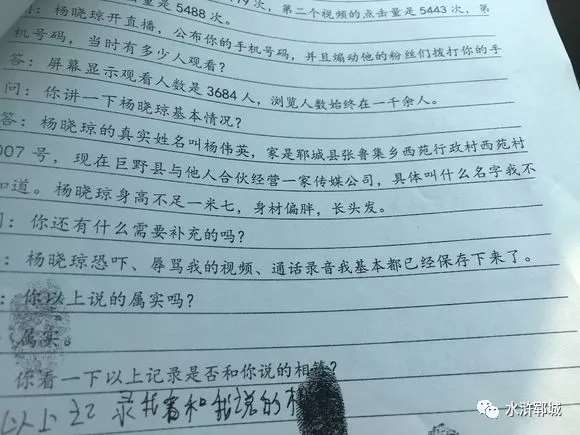 量是 5488 次。
次，第二个视频的点击量是 5443 次，第
杨晓琼开直播，公布你的手机号码，并且煽动他的粉丝们拨打你的手
机号码，当时有多少人观看？
答：屏幕显示观看人数是 3684 人，浏览人数始终在一千余人。
问：你讲一下杨晓琼基本情况？
答：杨晓琼的真实姓名叫杨伟英，家是郓城县张鲁集乡西苑行政村西苑村
007 号，现在巨野县与他人合伙经营一家传媒公司，具体叫什么名字我不
知道。杨晓琼身高不足一米七，身材偏胖，长头发。
：你还有什么需要补充的吗？
：杨晓琼恐吓、辱骂我的视频、通话录音我基本都已经保存下来了。
：你以上说的属实吗？
属实。
你看一下以上记录是否和你说的相符？
以上记录我看和我说的相
水浒郓城